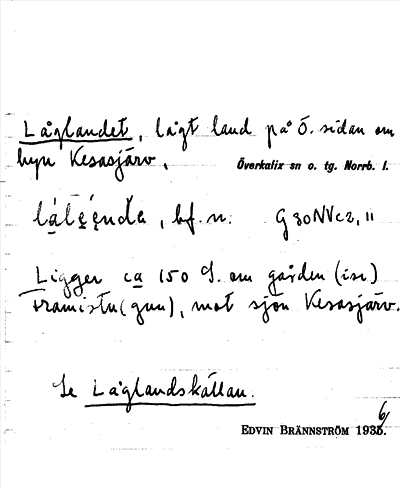 Låglandet, lågt land på Ö. sidan om
byn Kesasjärv.
Överkalix sn o. tg. Norrb. l.
bf. n. G 30 NV c 2, 11
Ligger ca 150 S. om gården (ise)
framistu (gun), mot sjön Kesasjärv.
Se Låglandskällan.
EDVIN BRÄNNSTRÖM 1936.